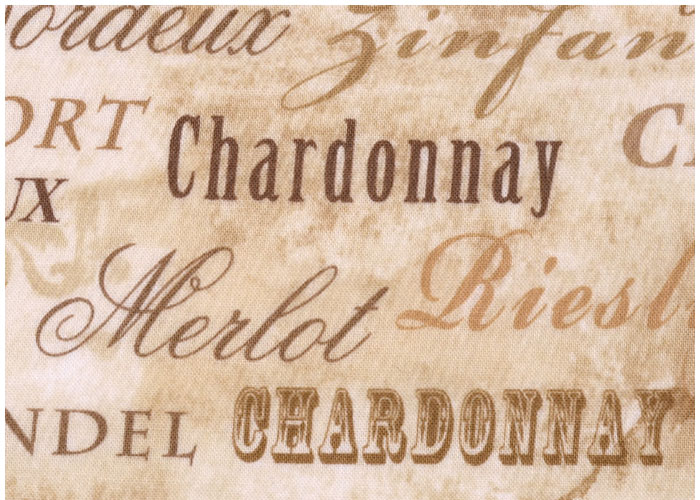 ordeux Zinfan
ORT Chardonnay C
UX
Merlot Riesl
NDEL CHARDONNAY